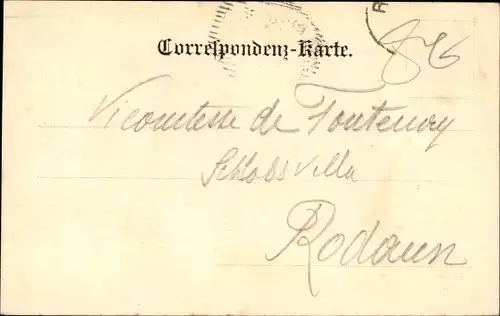 Correspondenz-Karte.
Vicomtesse de Fontenay
Schloss Villa
Rodaun